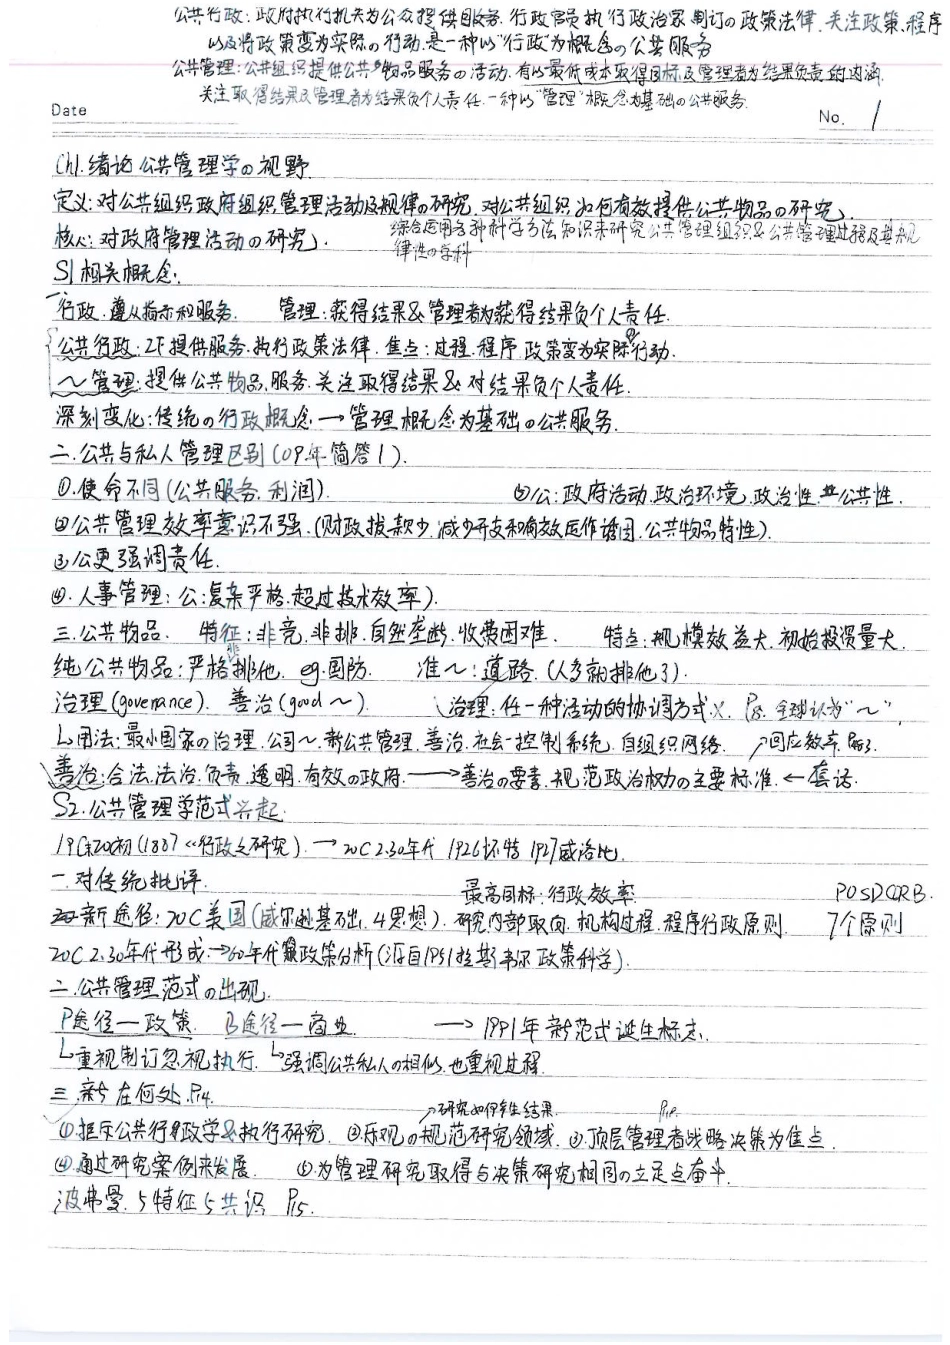 公共行政:政府执行机关为公众提供的服务.行政官员执行政治家制订の政策法律.关注政策、程序
以及将政策变为实际の行动.是一种以“行政”为概念の公共服务
公共管理:公共组织提供公共物品服务の活动.有以最低成本取得目标及管理者为结果负责的内涵.
关注取得结果及管理者为结果负个人责任.一种以“管理”概念为基础の公共服务.
Date
No. 1
Ch1.绪论 公共管理学の视野.
定义:对公共组织政府组织管理活动及规律の研究.对公共组织如何有效提供公共物品の研究.
核心:对政府管理活动の研究.
综合运用各种科学方法知识来研究公共管理组织&公共管理过程及其规
律性の学科
S1相关概念:
一行政.遵从指示和服务. 管理:获得结果&管理者为获得结果负个人责任.
公共行政:ZF提供服务.执行政策法律.焦点:过程.程序.政策变为实际の行动.
~管理:提供公共物品,服务.关注取得结果&对结果负个人责任.
深刻变化:传统の行政概念→管理概念为基础の公共服务.
二.公共与私人管理区别(09年简答1).
①.使命不同(公共服务.利润). ⑤公:政府活动.政治环境.政治性.公共性.
②公共管理效率意识不强.(财政拨款少.减少开支和有效运作诱因.公共物品特性).
③公更强调责任.
④.人事管理:公:复杂严格.超过技术效率).
三.公共物品. 特征:非竞.非排.自然垄断.收费困难. 特点:规模效益大.初始投资量大.
纯公共物品:严格非排他. eg.国防. 准~:道路.(人多就排他了).
治理(governance). 善治(good~) 治理:任一种活动的协调方式. P8.全球认为“~”
用法:最小国家の治理.公司~.新公共管理.善治.社会-控制系统.自组织网络. →回应效率.
善治:合法.法治.负责.透明.有效の政府.→善治の要素.规范政治权力の主要标准.←套话.
S2.公共管理学范式兴起.
19C末20C初(1887《行政之研究).→20C2.30年代 1926怀特 1927威洛比.
一.对传统批评.
最高目标:行政效率. POSDCORB.
新途径:20C美国(威尔逊基础.4思想).研究内部取向.机构过程.程序行政原则. 7个原则
20C2.30年代形成.→60年代政策分析(源自1951拉斯韦尔政策科学).
二.公共管理范式の出现.
P途径—政策. B途径—商业. →1991年新范式诞生标志.
重视制订忽视执行. 强调公共私人の相似.也重视过程.
三.新在何处.P14.
→研究如何产生结果.
①拒斥公共行政学&执行研究.②乐观の规范研究领域.③顶层管理者战略决策为焦点.
④通过研究案例来发展. ⑤为管理研究取得与决策研究相同の立足点奋斗.
波弗曼.5特征5共识 P15.